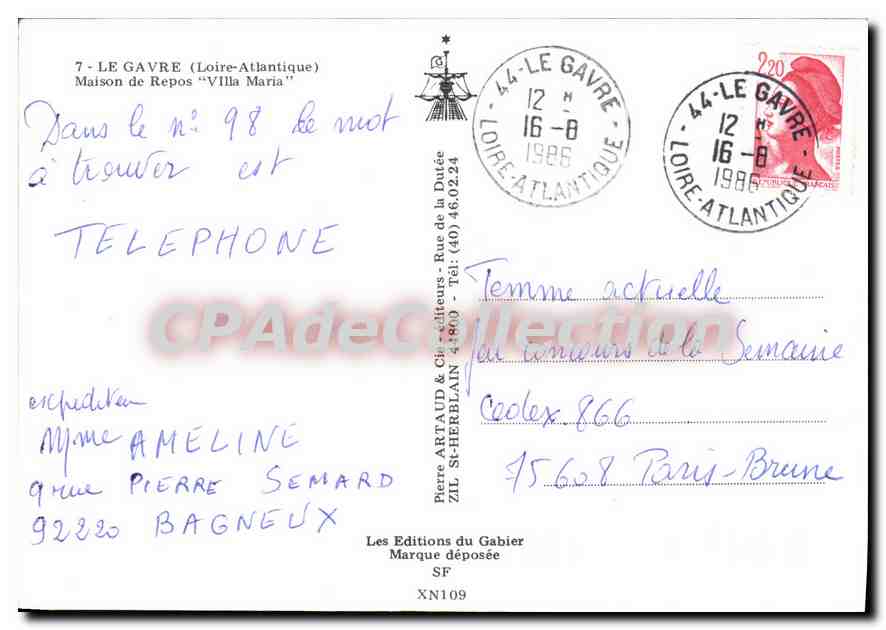 7 - LE GAVRE (Loire-Atlantique)
Maison de Repos "VIlla Maria"
Dans le n° 98 le mot
à trouver est
TELEPHONE
expediteur
Mme AMELINE
9 rue PIERRE SEMARD
92220 BAGNEUX
Pierre ARTAUD & Cie - éditeurs - Rue de la Dutée
ZIL St-HERBLAIN 44800 - Tél: (40) 46.02.24
44-LE GAVRE
12 H
16-8
1986
LOIRE-ATLANTIQUE
2,20
44-LE GAVRE
12 H
16-8
1986
LOIRE-ATLANTIQUE
Femme actuelle
Jeu concours de la Semaine
Cedex 866
75608 Paris-Brune
Les Editions du Gabier
Marque déposée
SF
XN109
CPAdeCollection